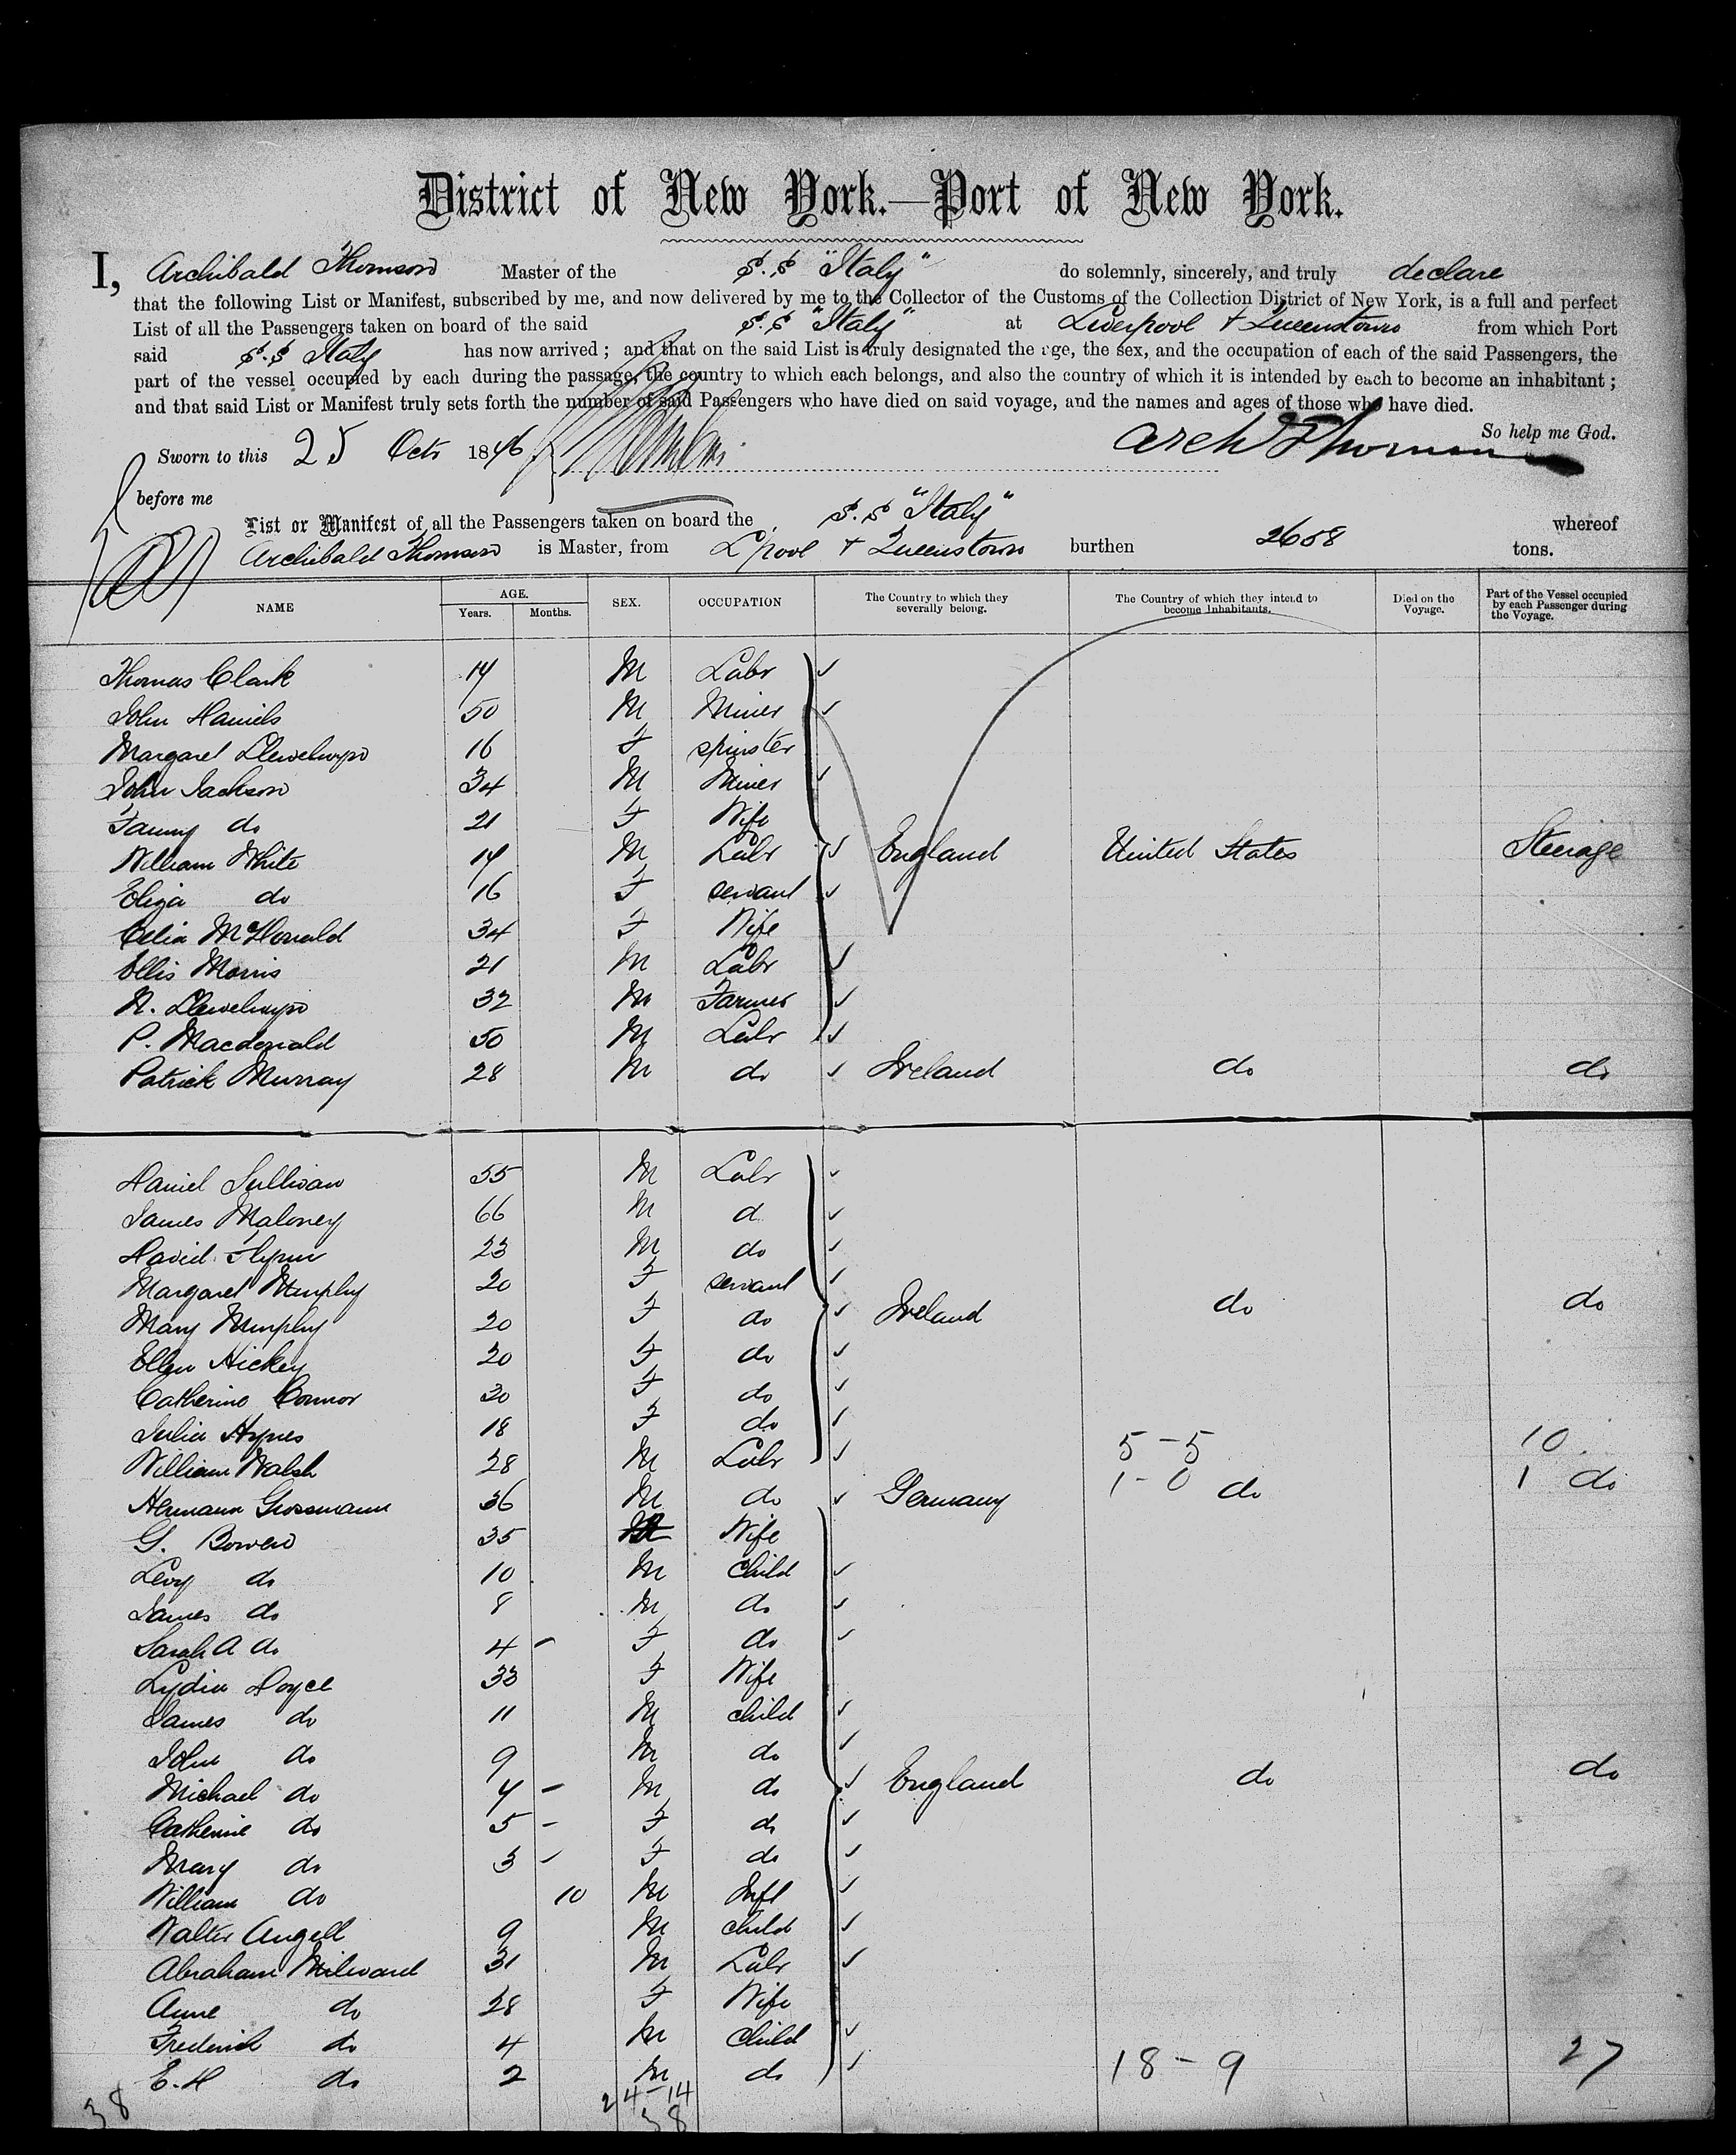 District of New York.—Port of New York.
I, Archibald Thomson Master of the S.S "Italy" do solemnly, sincerely, and truly declare
that the following List or Manifest, subscribed by me, and now delivered by me to the Collector of the Customs of the Collection District of New York, is a full and perfect
List of all the Passengers taken on board of the said S.S "Italy" at Liverpool + Queenstown from which Port
said S.S Italy has now arrived; and that on the said List is truly designated the age, the sex, and the occupation of each of the said Passengers, the
part of the vessel occupied by each during the passage, the country to which each belongs, and also the country of which it is intended by each to become an inhabitant;
and that said List or Manifest truly sets forth the number of said Passengers who have died on said voyage, and the names and ages of those who have died.
So help me God.
Sworn to this 25 Octr 18 Arch Thomson
before me
List or Manifest of all the Passengers taken on board the S.S "Italy" whereof
Archibald Thomson is Master, from L'pool + Queenstown burthen 2658 tons.
NAME AGE. SEX. OCCUPATION The Country to which they severally belong. The Country of which they intend to become Inhabitants. Died on the Voyage. Part of the Vessel occupied by each Passenger during the Voyage.
Years. Months.
Thomas Clark 14 M Labr
John Daniels 50 M Miner
Margaret Llewelwyn 16 F spinster
John Jackson 34 M Miner
Fanny do 21 F Wife
William White 14 M Labr England United States Steerage
Eliza do 16 F servant
Celia McDonald 34 F Wife
Ellis Morris 21 M Labr
N. Llewelwyn 32 M Farmer
P. Macdonald 50 M Labr
Patrick Murray 28 M do Ireland do do
Daniel Sullivan 55 M Labr
James Maloney 66 M d
David Flynn 23 M do
Margaret Murphy 20 F servant
Mary Murphy 20 F do Ireland do do
Ellen Hickey 20 F do
Catherine Connor 30 F do
Julia Hynes 18 F do
William Walsh 28 M Labr 5-5 10
Hermann Grossmann 36 M do Germany 1-0 do 1 do
G. Bowen 35 Wife
Levy do 10 M child
James do 8 M do
Sarah A do 4 F do
Lydia Doyce 33 F Wife
James do 11 M child
John do 9 M do
Michael do 4 M do England do do
Catherine do 5 F do
Mary do 3 F do
William do 10 M Inft
Walter Angell 9 M child
Abraham Milward 31 M Labr
Anne do 28 F Wife
Frederick do 4 M child
E.H do 2 M do 18-9 27
38 24-14
38